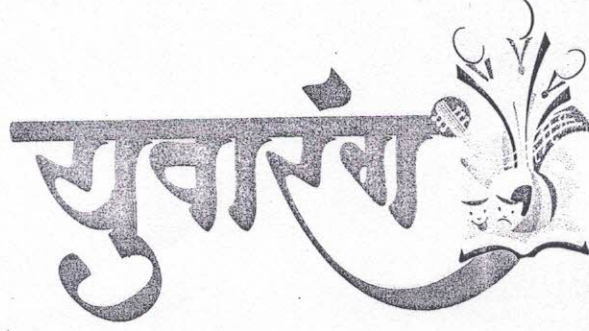 युवारंग